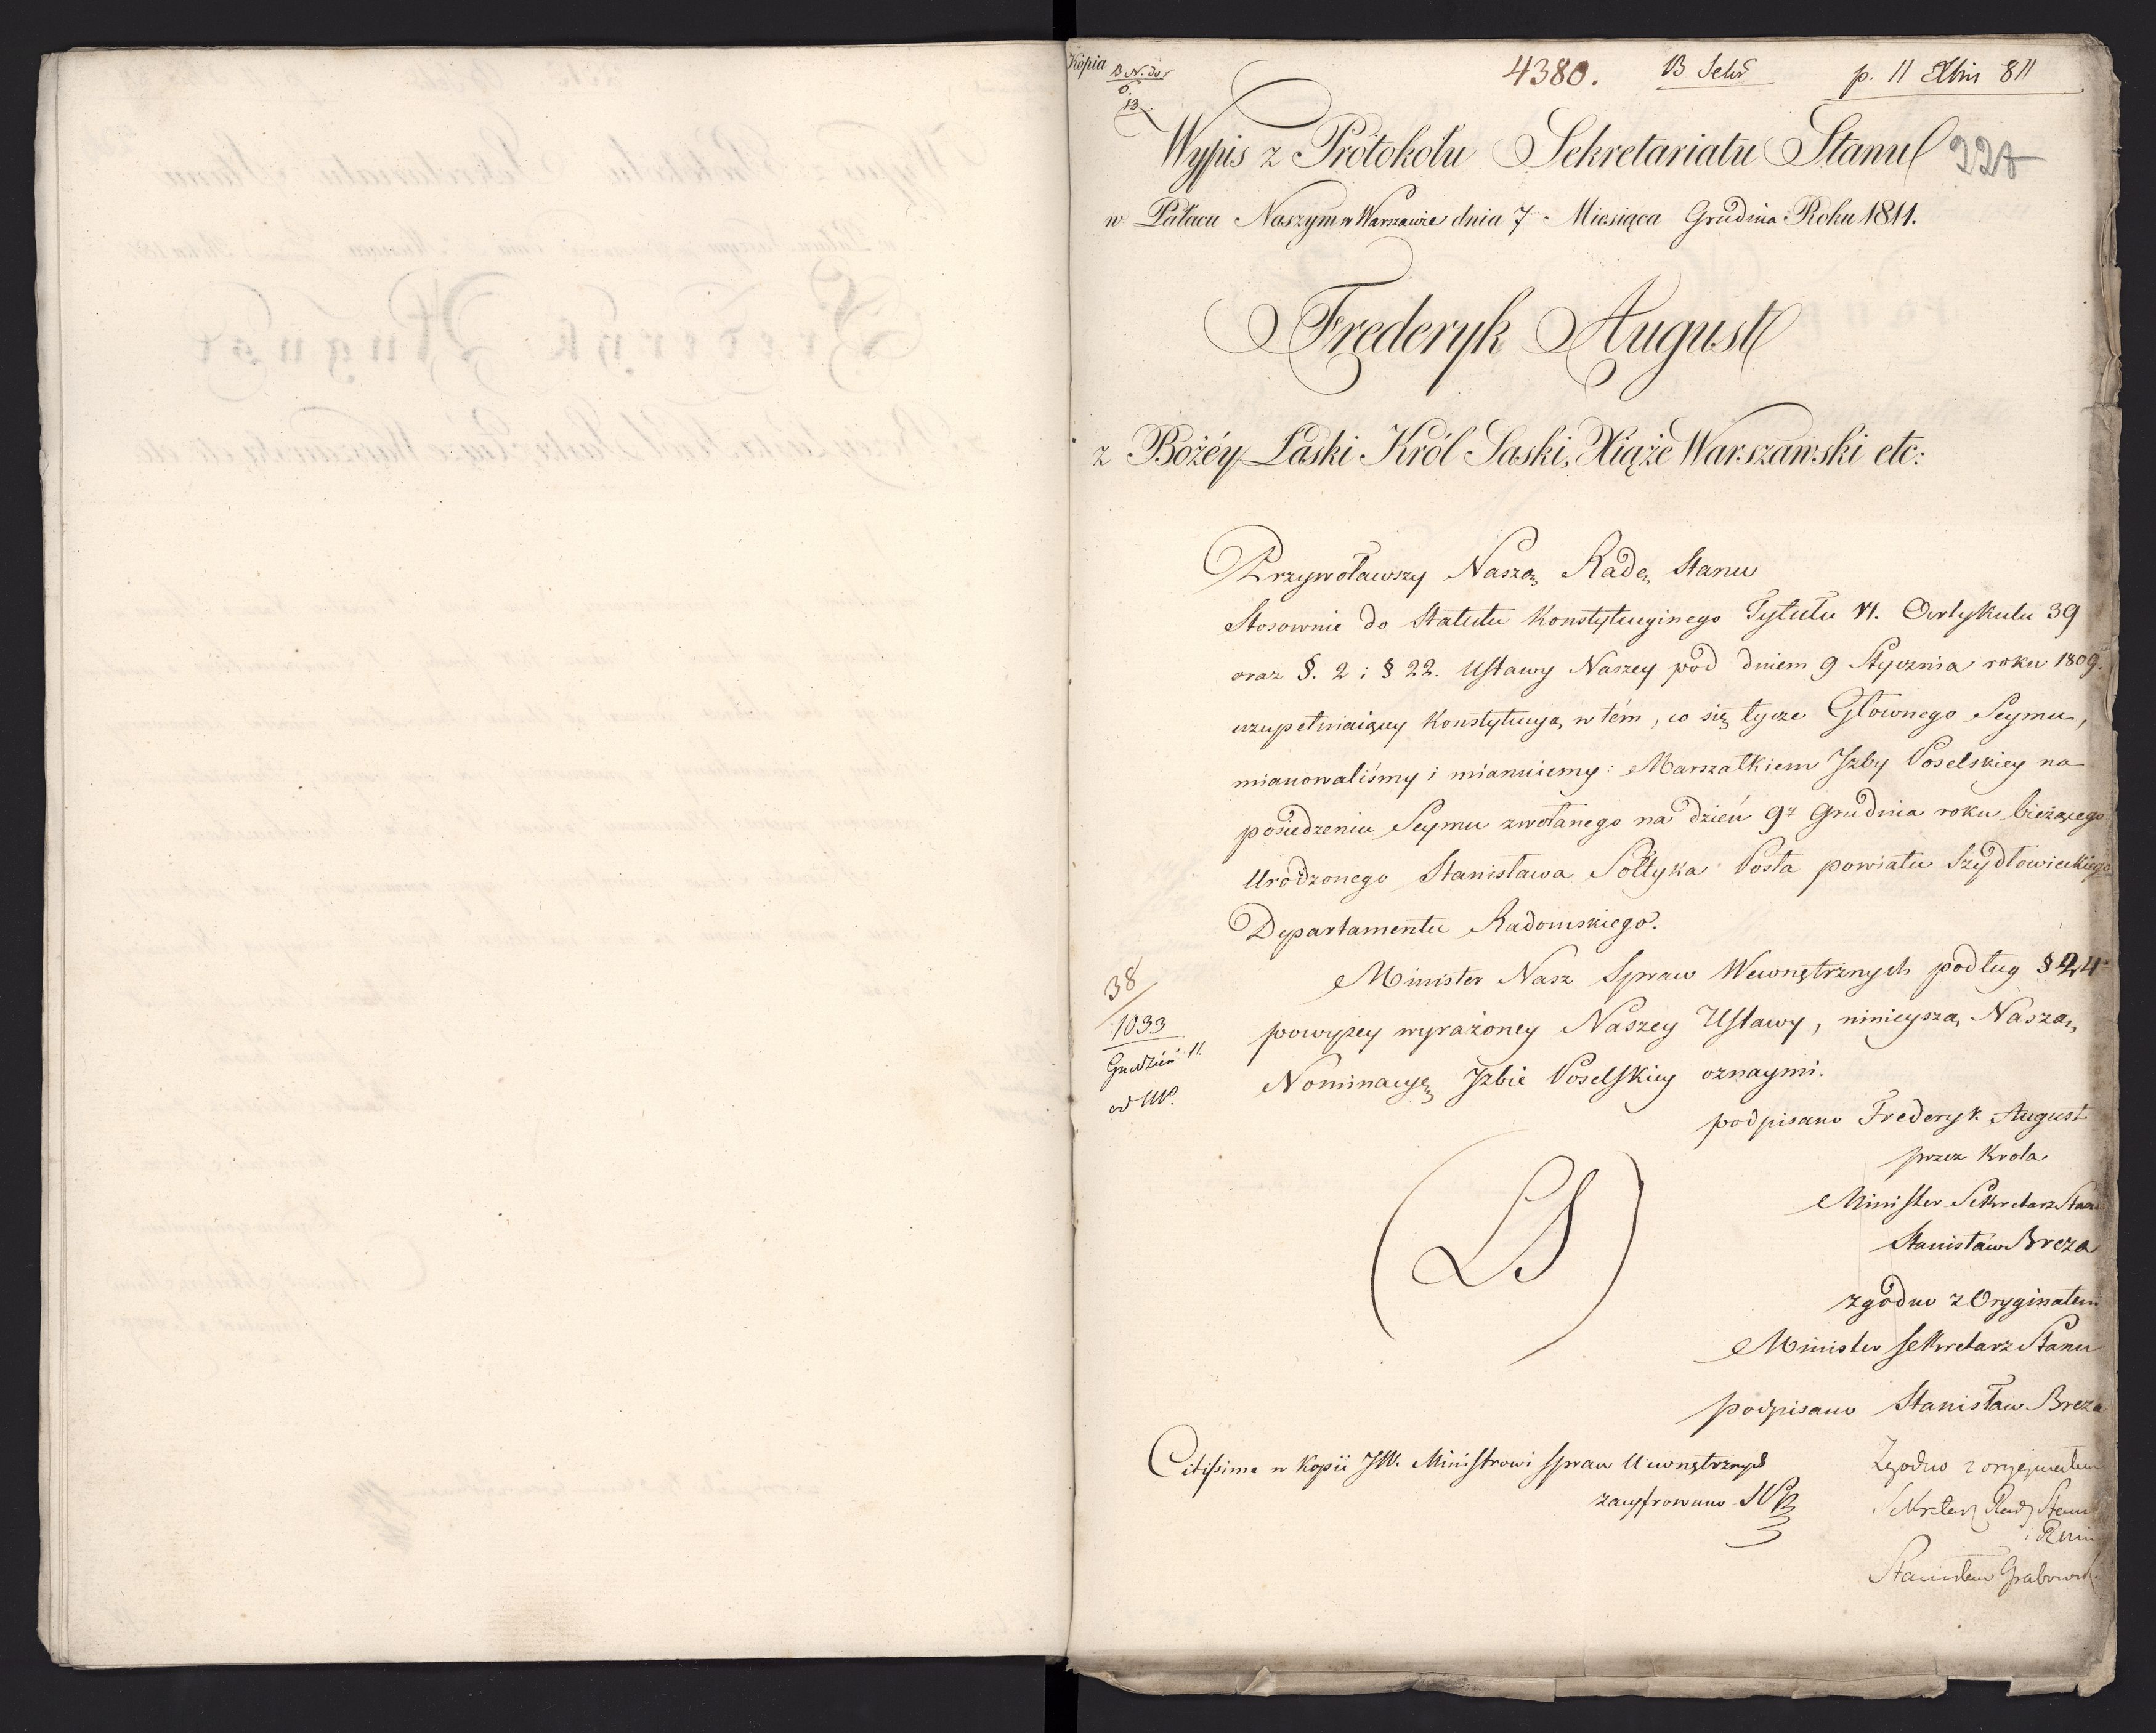 Kopia
4380.
p. 11 Xbris 811
Wypis z Protokołu Sekretariatu Stanu
w Pałacu Naszym w Warszawie dnia 7 Miesiąca Grudnia Roku 1811.
Frederyk August
z Bożéy Łaski Król Saski, Xiąże Warszawski etc:
Przywoławszy Naszą Radę Stanu
Stosownie do Statutu Konstytucyinego Tytułu VI. Artykułu 39
oraz §. 2 i § 22. Ustawy Naszey pod dniem 9 Stycznia roku 1809.
uzupełniaiącey Konstytucyą w tém, co się tycze Głownego Seymu,
mianowaliśmy i mianuiemy: Marszałkiem Izby Poselskiey na
posiedzeniu Seymu zwołanego na dzień 9ty Grudnia roku bieżącego
Urodzonego Stanisława Sołtyka Posła powiatu Szydłowieckiego
Departamentu Radomskiego.
Minister Nasz Spraw Wewnętrznych podług § 24
powyżey wyrażoney Naszey Ustawy, ninieyszą Naszą
Nominacyę Izbie Poselskiey oznaymi.
38
1033
Grudzień 11.
podpisano Frederyk August
przez Krola
Minister Sekretarz Stanu
Stanisław Breza
(LS)
zgodno z Oryginałem
Minister Sekretarz Stanu
podpisano Stanisław Breza
Citissime w Kopii JW. Ministrowi Spraw Wewnętrznych
zacyfrowano SP
Zgodno z oryginałem
Sekretarz Rady Stanu
Stanisław Grabowski